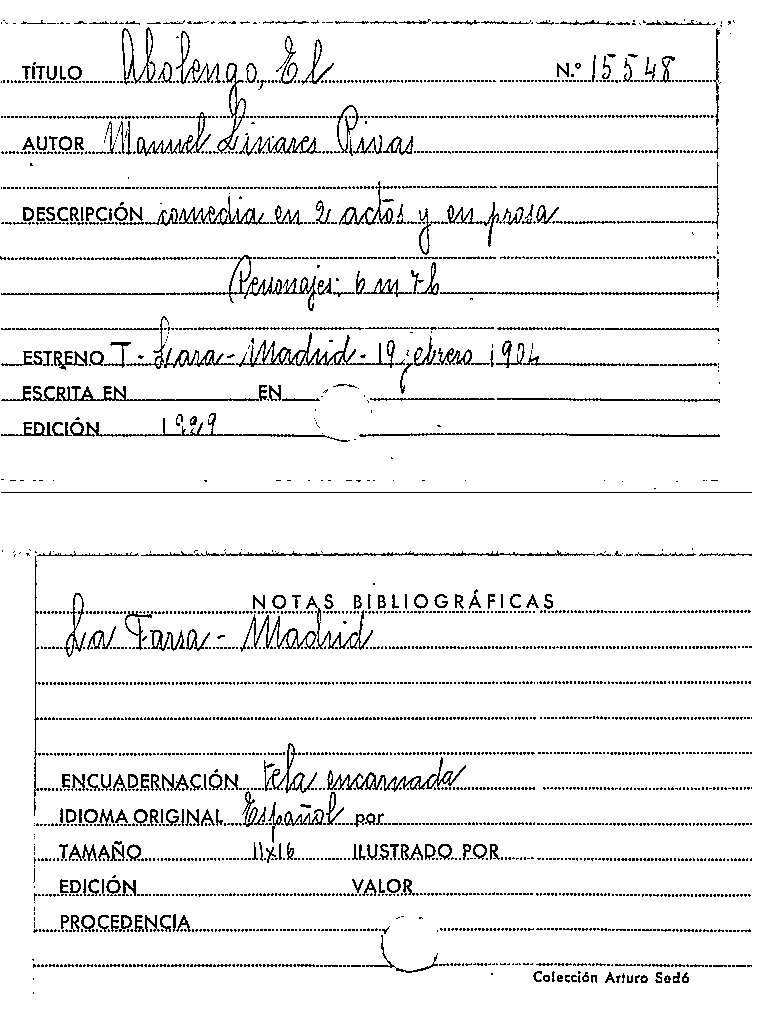 TÍTULO Abolengo, El N.º 15548
AUTOR Manuel Linares Rivas
DESCRIPCIÓN comedia en 2 actos y en prosa
(Personajes: 6 m 7 h
ESTRENO T - Lara - Madrid - 19 febrero 1904
ESCRITA EN EN
EDICIÓN 1929
NOTAS BIBLIOGRÁFICAS
La Farsa - Madrid
ENCUADERNACIÓN tela encarnada
IDIOMA ORIGINAL Español por
TAMAÑO 11x16 ILUSTRADO POR
EDICIÓN VALOR
PROCEDENCIA
Colección Arturo Sedó